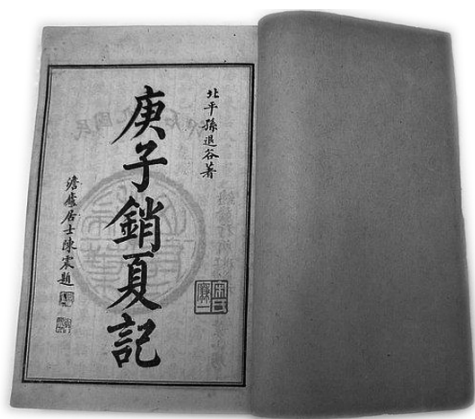 北平孫退谷著
庚子銷夏記
澹廬居士陳震題